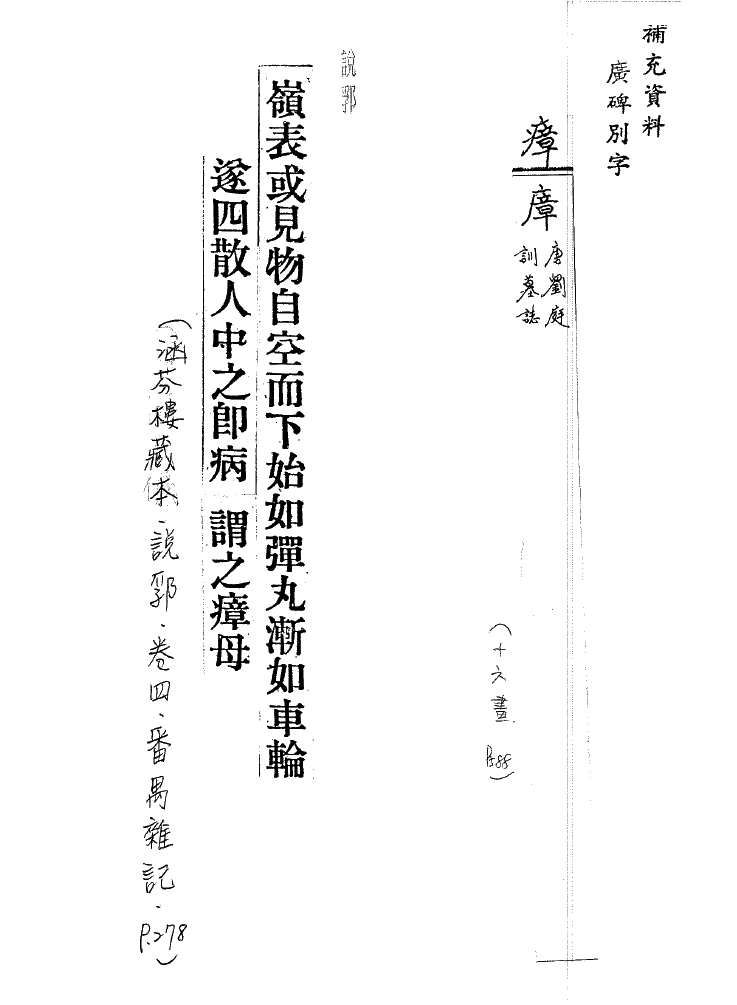 補充資料
廣碑別字
瘴
廗唐劉庭
訓墓誌
(十六畫 P.588)
說郛
嶺表或見物自空而下始如彈丸漸如車輪
遂四散人中之即病 謂之瘴母
(涵芬樓藏本.說郛.卷四.番禺雜記.P.278)